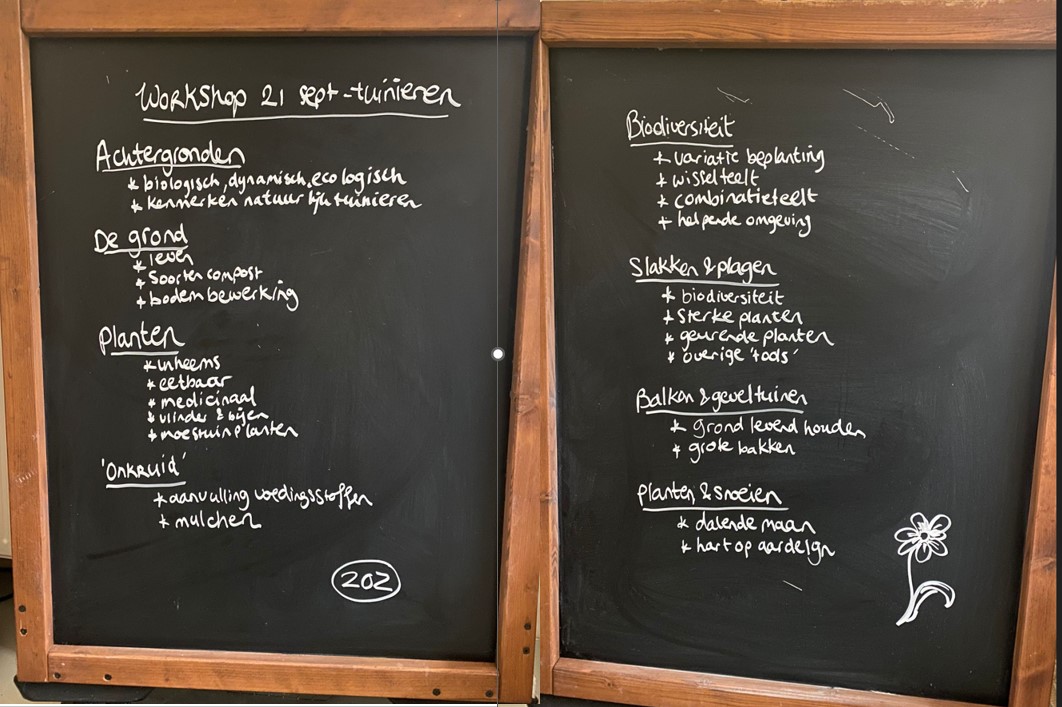 Workshop 21 sept - tuinieren
Achtergronden
* biologisch, dynamisch, ecologisch
* kenmerken natuur lijk tuinieren
De grond
* leven
* soorten compost
* bodem bewerking
Planten
* inheems
* eetbaar
* medicinaal
* vlinder & bijen
* moestuinplanten
'Onkruid'
* aanvulling voedingsstoffen
* mulchen
202
Biodiversiteit
* variatie beplanting
* wisselteelt
* combinatieteelt
* helpende omgeving
Slakken & plagen
* biodiversiteit
* sterke planten
* geurende planten
* overige 'tools'
Balkon & geveltuinen
* grond levend houden
* grote bakken
Planten & snoeien
* dalende maan
* hart op aarde